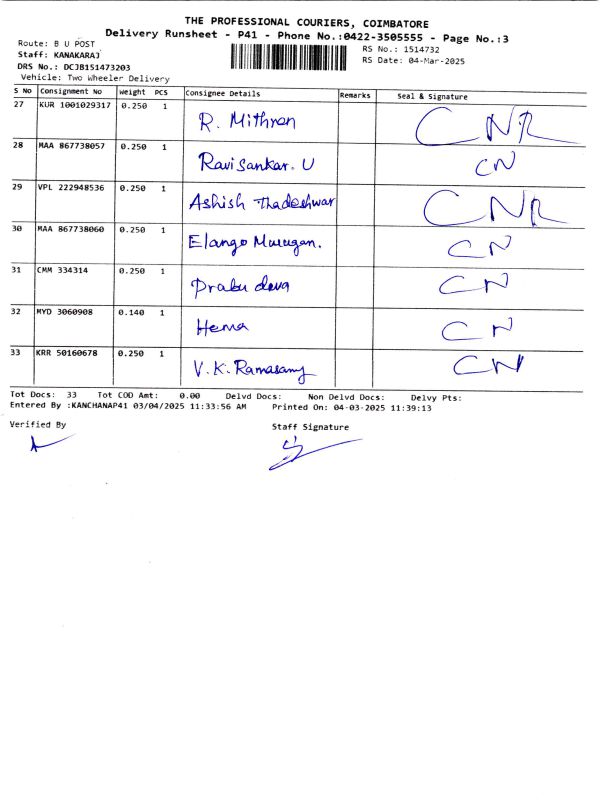 THE PROFESSIONAL COURIERS, COIMBATORE
Delivery Runsheet - P41 - Phone No.:0422-3505555 - Page No.:3
Route: B U POST
RS No.: 1514732
Staff: KANAKARAJ
RS Date: 04-Mar-2025
DRS No.: DCJB151473203
Vehicle: Two Wheeler Delivery
S No Consignment No Weight PCS Consignee Details Remarks Seal & Signature
27 KUR 1001029317 0.250 1 R. Mithran CNR
28 MAA 867738057 0.250 1 Ravisankar. U CN
29 VPL 222948536 0.250 1 Ashish Thadeshwar CNR
30 MAA 867738060 0.250 1 Elango Murugan. CN
31 CMM 334314 0.250 1 Prabu deva CN
32 MYD 3060908 0.140 1 Hema CN
33 KRR 50160678 0.250 1 V. K. Ramasamy CN
Tot Docs: 33 Tot COD Amt: 0.00 Delvd Docs: Non Delvd Docs: Delvy Pts:
Entered By :KANCHANAP41 03/04/2025 11:33:56 AM Printed On: 04-03-2025 11:39:13
Verified By Staff Signature